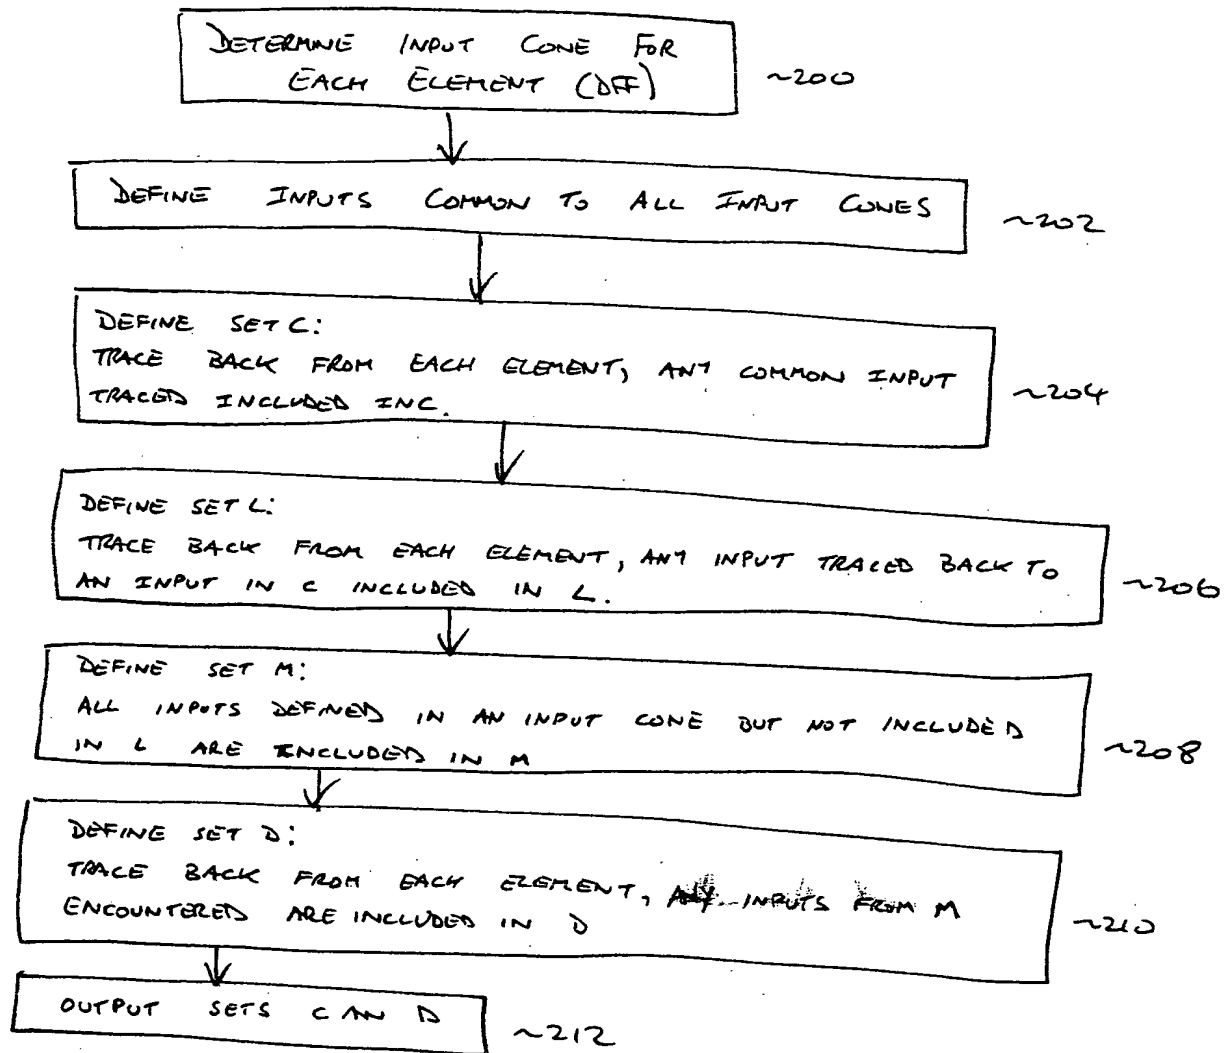 DETERMINE INPUT CONE FOR
EACH ELEMENT (DFF)
~200
DEFINE INPUTS COMMON TO ALL INPUT CONES
~202
DEFINE SET C:
TRACE BACK FROM EACH ELEMENT, ANY COMMON INPUT
TRACED INCLUDED IN C.
~204
DEFINE SET L:
TRACE BACK FROM EACH ELEMENT, ANY INPUT TRACED BACK TO
AN INPUT IN C INCLUDED IN L.
~206
DEFINE SET M:
ALL INPUTS DEFINED IN AN INPUT CONE BUT NOT INCLUDED
IN L ARE INCLUDED IN M
~208
DEFINE SET D:
TRACE BACK FROM EACH ELEMENT, ANY INPUTS FROM M
ENCOUNTERED ARE INCLUDED IN D
~210
OUTPUT SETS C AND D
~212